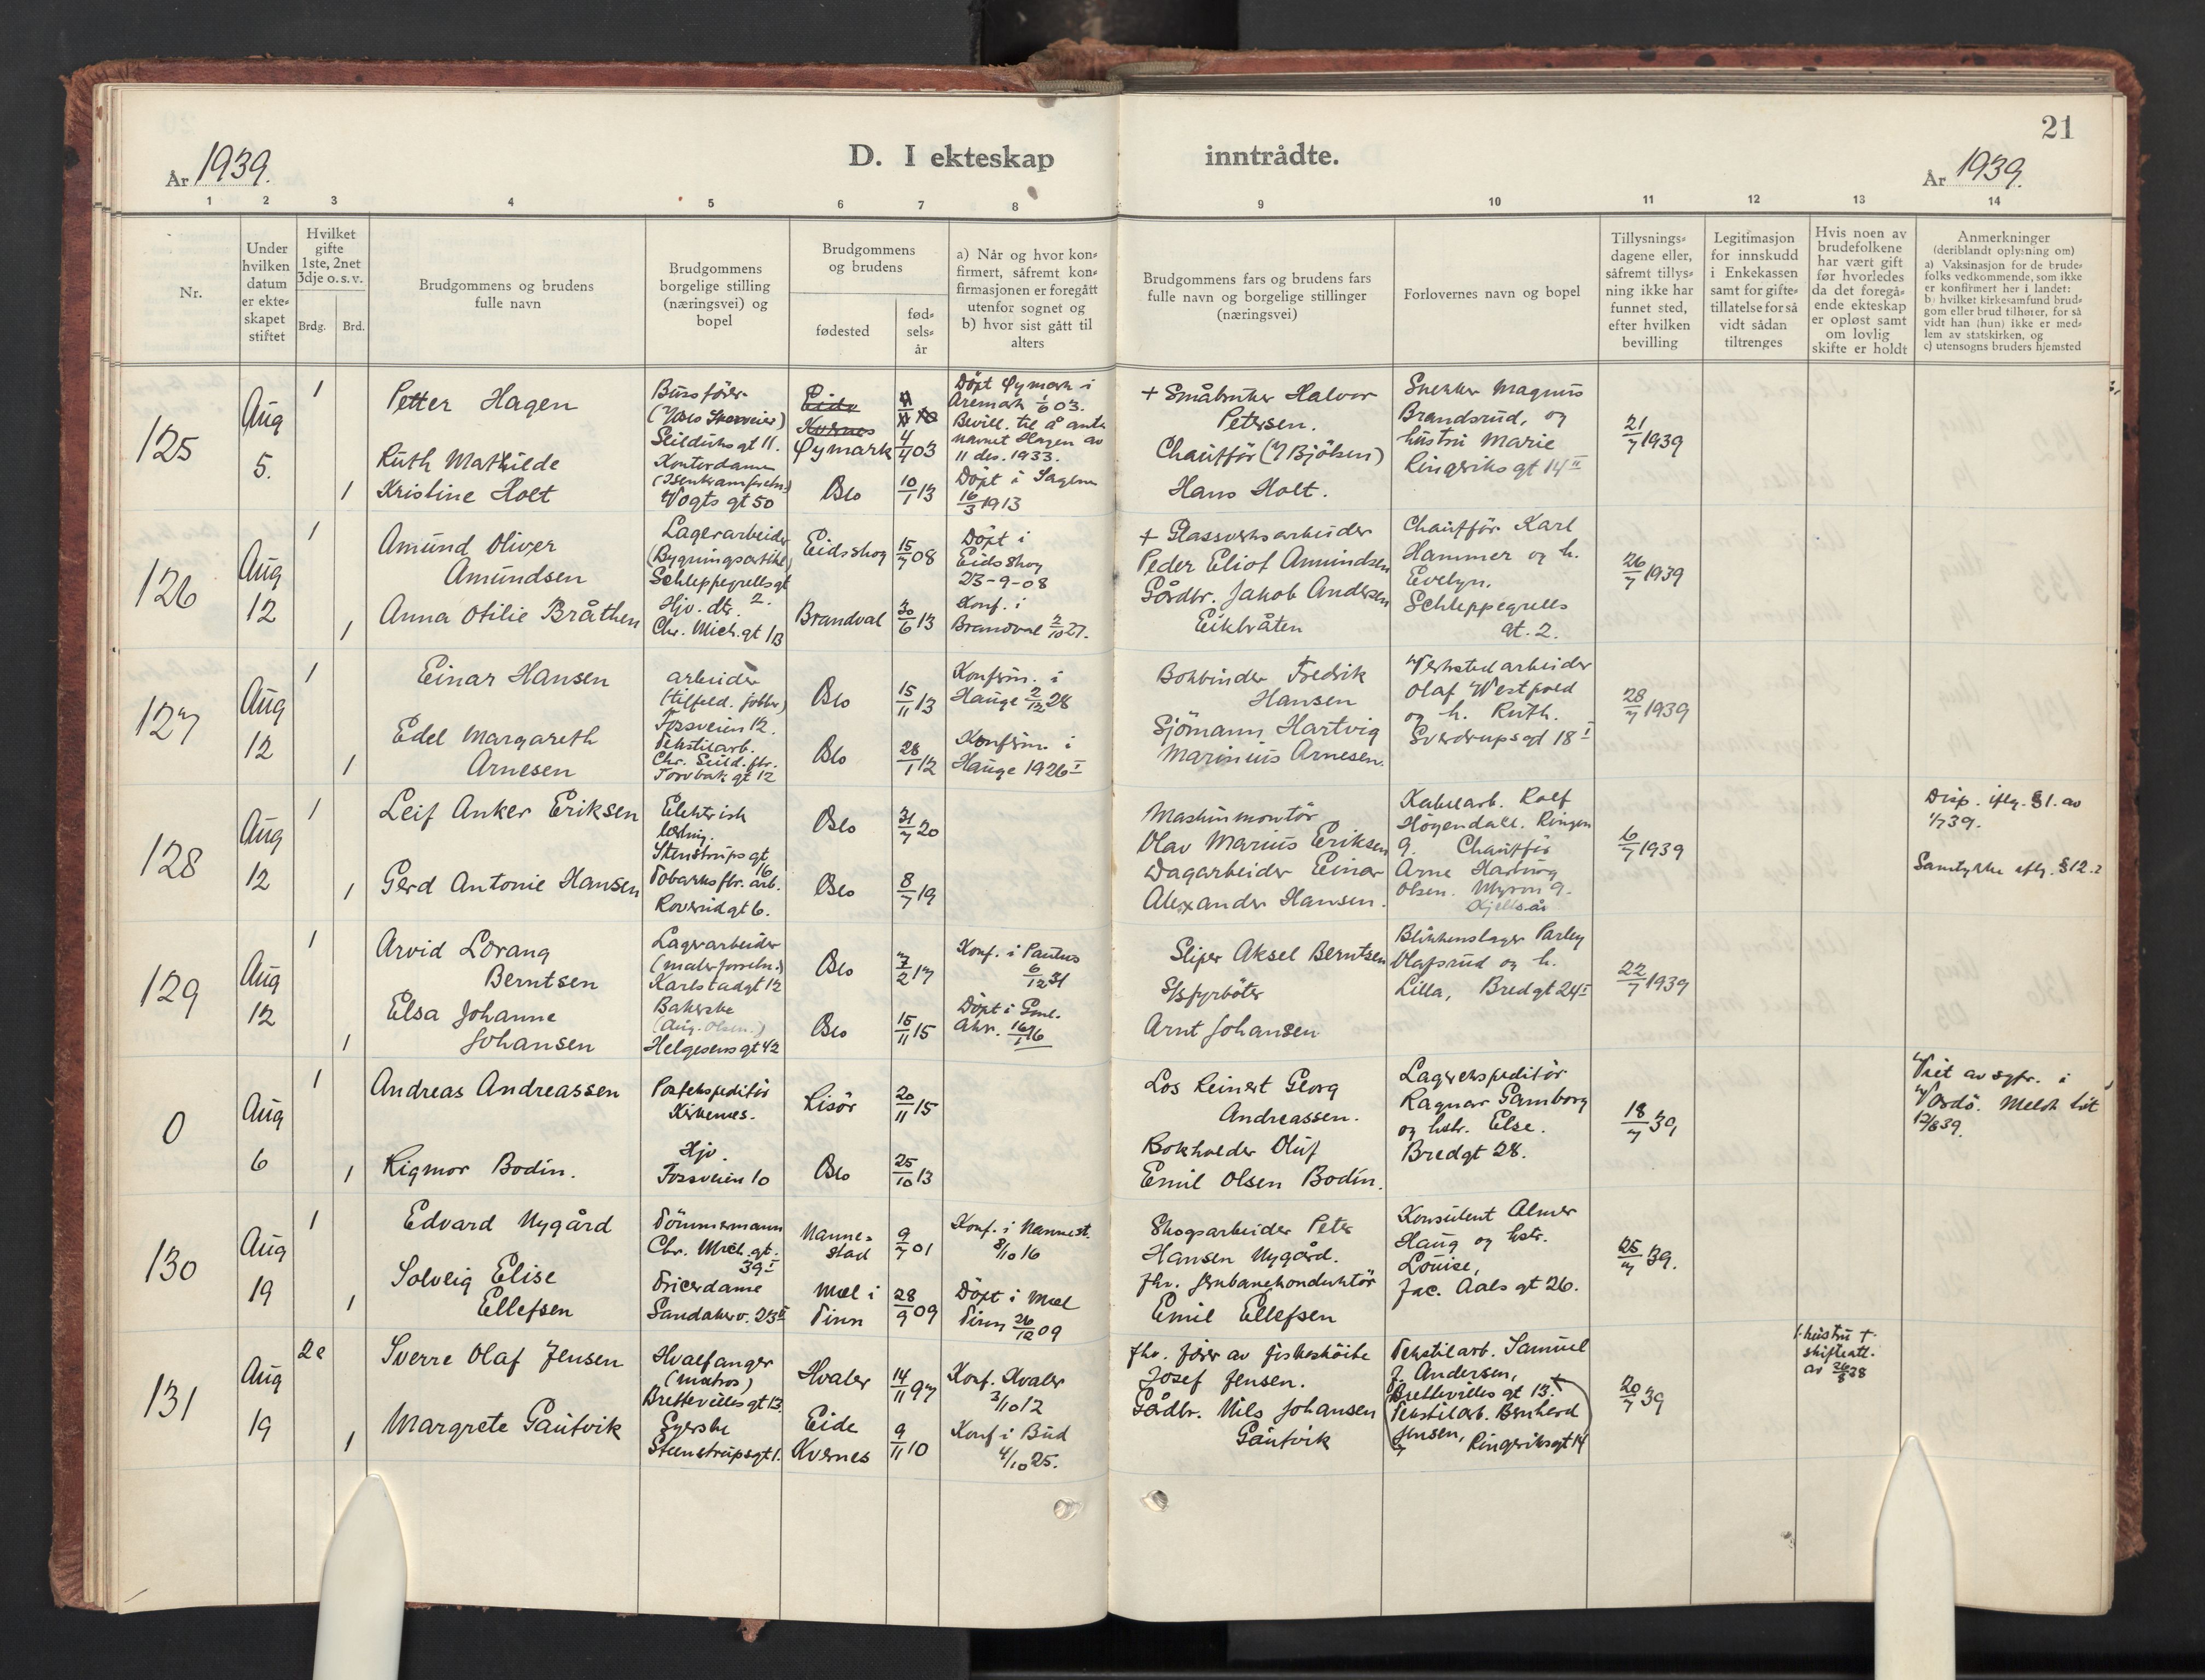 21
D. I ekteskap inntrådte.
År 1939.
År 1939.
1 2 3 4 5 6 7 8 9 10 11 12 13 14
Nr.
Under
hvilken
datum
er ekte-
skapet
stiftet
Hvilket
gifte
1ste, 2net
3dje o. s. v.
Brdg. Brd.
Brudgommens og brudens
fulle navn
Brudgommens
borgelige stilling
(næringsvei) og
bopel
Brudgommens
og brudens
fødested
fød-
sels-
år
a) Når og hvor kon-
firmert, såfremt kon-
firmasjonen er foregått
utenfor sognet og
b) hvor sist gått til
alters
Brudgommens fars og brudens fars
fulle navn og borgelige stillinger
(næringsvei)
Forlovernes navn og bopel
Tillysnings-
dagene eller,
såfremt tillys-
ning ikke har
funnet sted,
efter hvilken
bevilling
Legitimasjon
for innskudd
i Enkekassen
samt for gifte-
tillatelse for så
vidt sådan
tiltrenges
Hvis noen av
brudefolkene
har vært gift
før hvorledes
da det foregå-
ende ekteskap
er opløst samt
om lovlig
skifte er holdt
Anmerkninger
(deriblandt oplysning om)
a) Vaksinasjon for de brude-
folks vedkommende, som ikke
er konfirmert her i landet:
b) hvilket kirkesamfund brud-
gom eller brud tilhører, for så
vidt han (hun) ikke er med-
lem av statskirken, og
c) utensogns bruders hjemsted
125
Aug
5.
1
1
Petter Hagen
Ruth Mathilde
Kristine Holt
Bussfører
Seilduksgt 11.
Kontordame
Vogts gt 50
Eide
Kvernes
Øymark
Oslo
4/4 03
10/1 13
Döpt Øymark i
Aremark 1/6 03.
Bevill. til å anta
navnet Hagen av
11 des. 1933.
Döpt i Sagene
16/3 1913
+ Småbruker Halvor
Petersen.
Chaufför (Bjölsen)
Hans Holt.
Snekker Magnus
Brandsrud, og
hustru Marie
Ringeriks gt 14 II
21/7 1939
126
Aug
12
1
1
Amund Oliver
Amundsen
Anna Otilie Bråthen
Lagerarbeider
(Bygningsartikl.)
Schleppegrells gt
2.
Hjv. dtr.
Chr. Mich. gt 1B
Eidskog
Brandval
15/7 08
30/6 13
Döpt i
Eidskog
23-9-08
Konf. i
Brandval 2/10 27.
+ Glassverksarbeider
Peder Eliot Amundsen
Gårdbr. Jakob Andersen
Eikbråten
Chaufför Karl
Hammer og h.
Evelyn.
Schleppegrells
gt. 2.
26/7 1939
127
Aug
12
1
1
Einar Hansen
Edel Margareth
Arnesen
arbeider
(tilfeld. jobber)
Fossveien 12.
Tekstilarb.
Chr. Seild. fbr.
Torvbak gt 12
Oslo
Oslo
15/11 13
28/1 12
Konfirm. i
Hauge 2/12 28
Konfirm. i
Hauge 1926 I
Bokbinder Fredrik
Hansen
Sjömann Hartvig
Marinius Arnesen.
Verkstedarbeider
Olaf Westvold
og h. Ruth.
Sverdrupsgt 18 I
28/7 1939
128
Aug
12
1
1
Leif Anker Eriksen
Gerd Antonie Hansen
Elektrisk
Stenstrups gt
16
Tobakksfbr. arb.
Roverudgt 6.
Oslo
Oslo
31/7 20
8/7 19
Maskinmontör
Olav Marius Eriksen
Dagarbeider Einar
Alexander Hansen.
Kabelarb. Rolf
Höyendall. Ringen
9. Chaufför
Arne Harburg
Olsen. Myren 9.
Kjellsås
6/7 1939
Disp. iflg. §1. av
1/7 39.
Samtykke iflg. §12.2
129
Aug
12
1
1
Arvid Lorang
Berntsen
Elsa Johanne
Johansen
Lagerarbeider
(malerforretn.)
Karlstadgt 12
Bakerske
(Aug. Olsen.)
Helgesens gt 42
Oslo
Oslo
7/2 17
15/11 15
Konf. i Paulus
6/12 31
Döpt i Gml.
Aker. 16/1 16
Sliper Aksel Berntsen
S/S fyrböter
Arnt Johansen
Blikkenslager Parley
Olafsrud og h.
Lilla, Bredgt 24 I
22/7 1939
0
Aug
6
1
1
Andreas Andreassen
Rigmor Bodin.
Postekspeditör
Kirkenes.
Hjv.
Fossveien 10
Risör
Oslo
20/11 15
25/10 13
Los Reinert Georg
Andreassen.
Bokholder Oluf
Emil Olsen Bodin.
Lagerekspeditör
Ragnar Gamborg
og hstr. Else.
Bredgt 28.
18/7 39
Viet av sgpr. i
Vardö. Meldt hit
12/8 39.
130
Aug
19
1
1
Edvard Nygård
Solveig Elise
Ellefsen
Tömmermann
Chr. Mich. gt.
39 I
Frierdame
Sandakerv. 23 II
Nanne-
stad
Mæl i
Tinn
9/7 01
28/9 09
Konf. i Nannest.
8/10 16
Döpt i Mæl
Tinn 26/12 09
Skogsarbeider Peter
Hansen Nygård.
fhv. jernbanekonduktör
Emil Ellefsen
Konsulent Almer
Haug og hstr.
Louise,
Jac. Aals gt 26.
25/7 39.
131
Aug
19
2e
1
Sverre Olaf Jensen
Margrete Gautvik
Hvalfanger
(matros)
Brettevilles gt 13.
Syerske
Steenstrupsgt 1.
Hvaler
Eide
Kvernes
14/11 97
9/11 10
Konf. Hvaler
3/10 12
Konf i Bud
4/10 25.
fhv. fører av fiskeskøite
Josef Jensen.
Gårdbr. Nils Johansen
Gautvik
Tekstilarb. Samuel
J. Andersen,
Brettevilles gt 13.
Tekstilarb. Bernhard
Jensen, Ringeriksgt 14
20/7 39
1. hustru †
skifteatt.
av 26/8 38